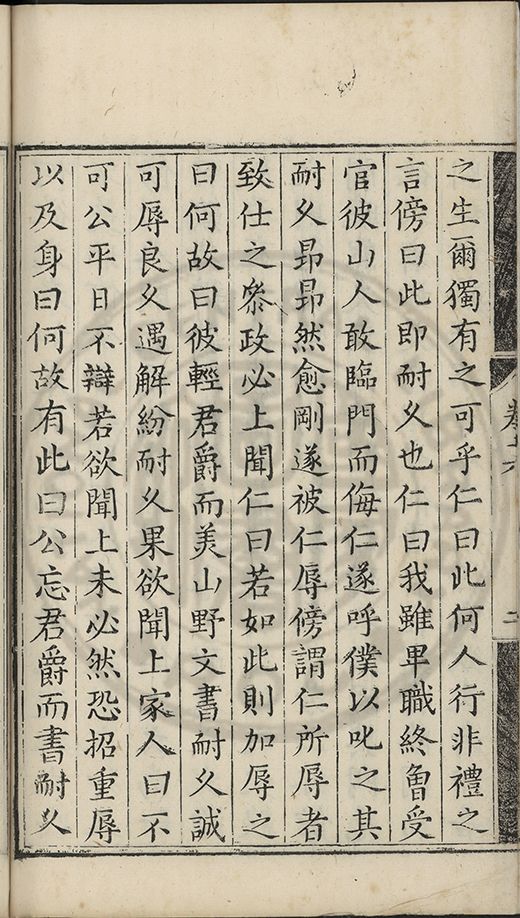 之生爾獨有之可乎仁曰此何人行非禮之
言傍曰此即耐久也仁曰我雖畢職終魯受
官彼山人敢臨門而侮仁遂呼僕以叱之其
耐久昻昻然愈剛遂被仁辱傍謂仁所辱者
致仕之叅政必上聞仁曰若如此則加辱之
曰何故曰彼輕君爵而羙山野文書耐久誠
可辱良久遇解紛耐久果欲聞上家人曰不
可公平日不辯若欲聞上未必然恐招重辱
以及身曰何故有此曰公忘君爵而書耐久